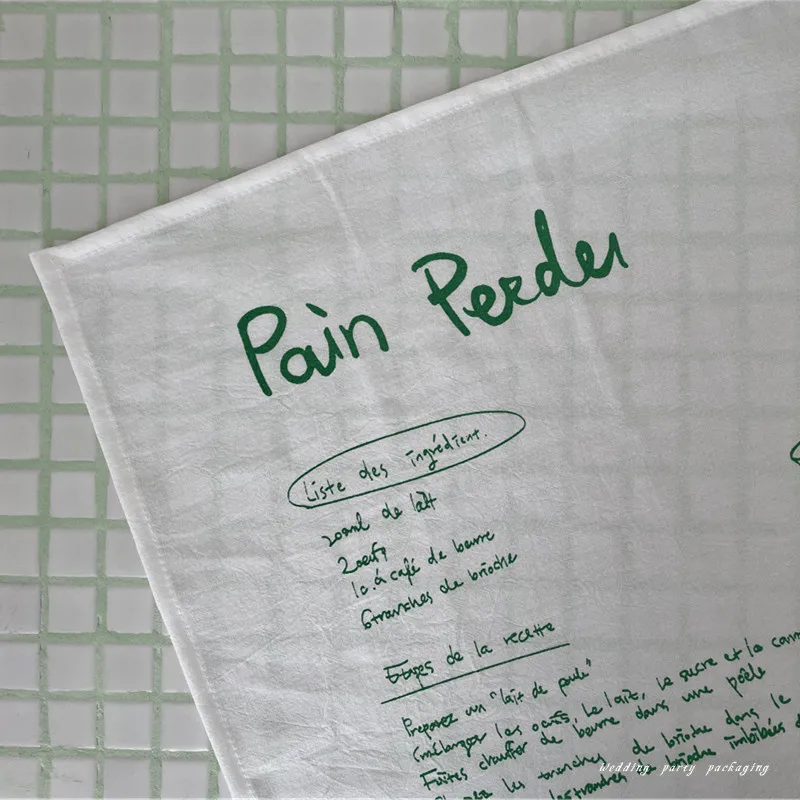 Pain Perdu
Liste des ingrédient.
200ml de lait
2 oeufs
1c.à café de beurre
6 tranches de brioche
Etapes de la recette
Preparez un "lait de poule"
(mélanger les oeufs, le lait, le sucre et la
Faites chauffer de beurre dans une poêle
les tranches de brioche dans le
brioche imbibées
wedding party packaging